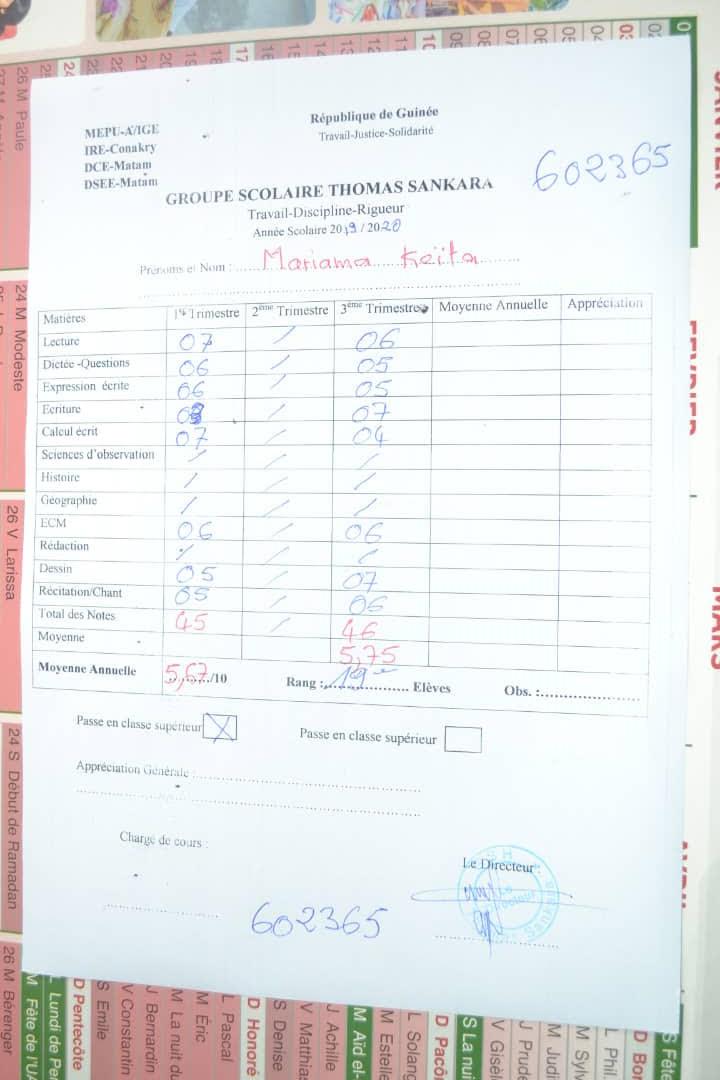 MEPU-A/IGE
IRE-Conakry
DCE-Matam
DSEE-Matam
République de Guinée
Travail-Justice-Solidarité
602365
GROUPE SCOLAIRE THOMAS SANKARA
Travail-Discipline-Rigueur
Année Scolaire 2019/2020
Prénoms et Nom : Mariama Keïta
Matières 1er Trimestre 2ème Trimestre 3ème Trimestre Moyenne Annuelle Appréciation
Lecture 07 / 06
Dictée -Questions 06 / 05
Expression écrite 06 / 05
Ecriture / 07
Calcul écrit 07 / 04
Sciences d'observation / / /
Histoire / / /
Géographie / / /
ECM 06 / 06
Rédaction / / /
Dessin 05 / 07
Récitation/Chant 05 / 06
Total des Notes 45 / 46
Moyenne 5,75
Moyenne Annuelle 5,67/10 Rang : 19e Elèves Obs. :
Passe en classe supérieur X Passe en classe supérieur
Appréciation Générale :
Chargé de cours :
Le Directeur :
602365
26 M Paule
24 M Modeste
26 V Larissa
24 S Début de Ramadan
26 M Bérenger
M Fête de l'UA
L Lundi de Pen
D Pentecôte
S Emile
V Constantin
J Bernardin
M La nuit du
M Éric
L Pascal
D Honoré
S Denise
V Matthias
J Achille
M Aïd el-
M Estelle
L Solang
D Pacô
S La nui
V Gisèl
J Prude
M Judi
M Sylv
L Phil
D Bon
S Fête
JANVIER
FEVRIER
MARS